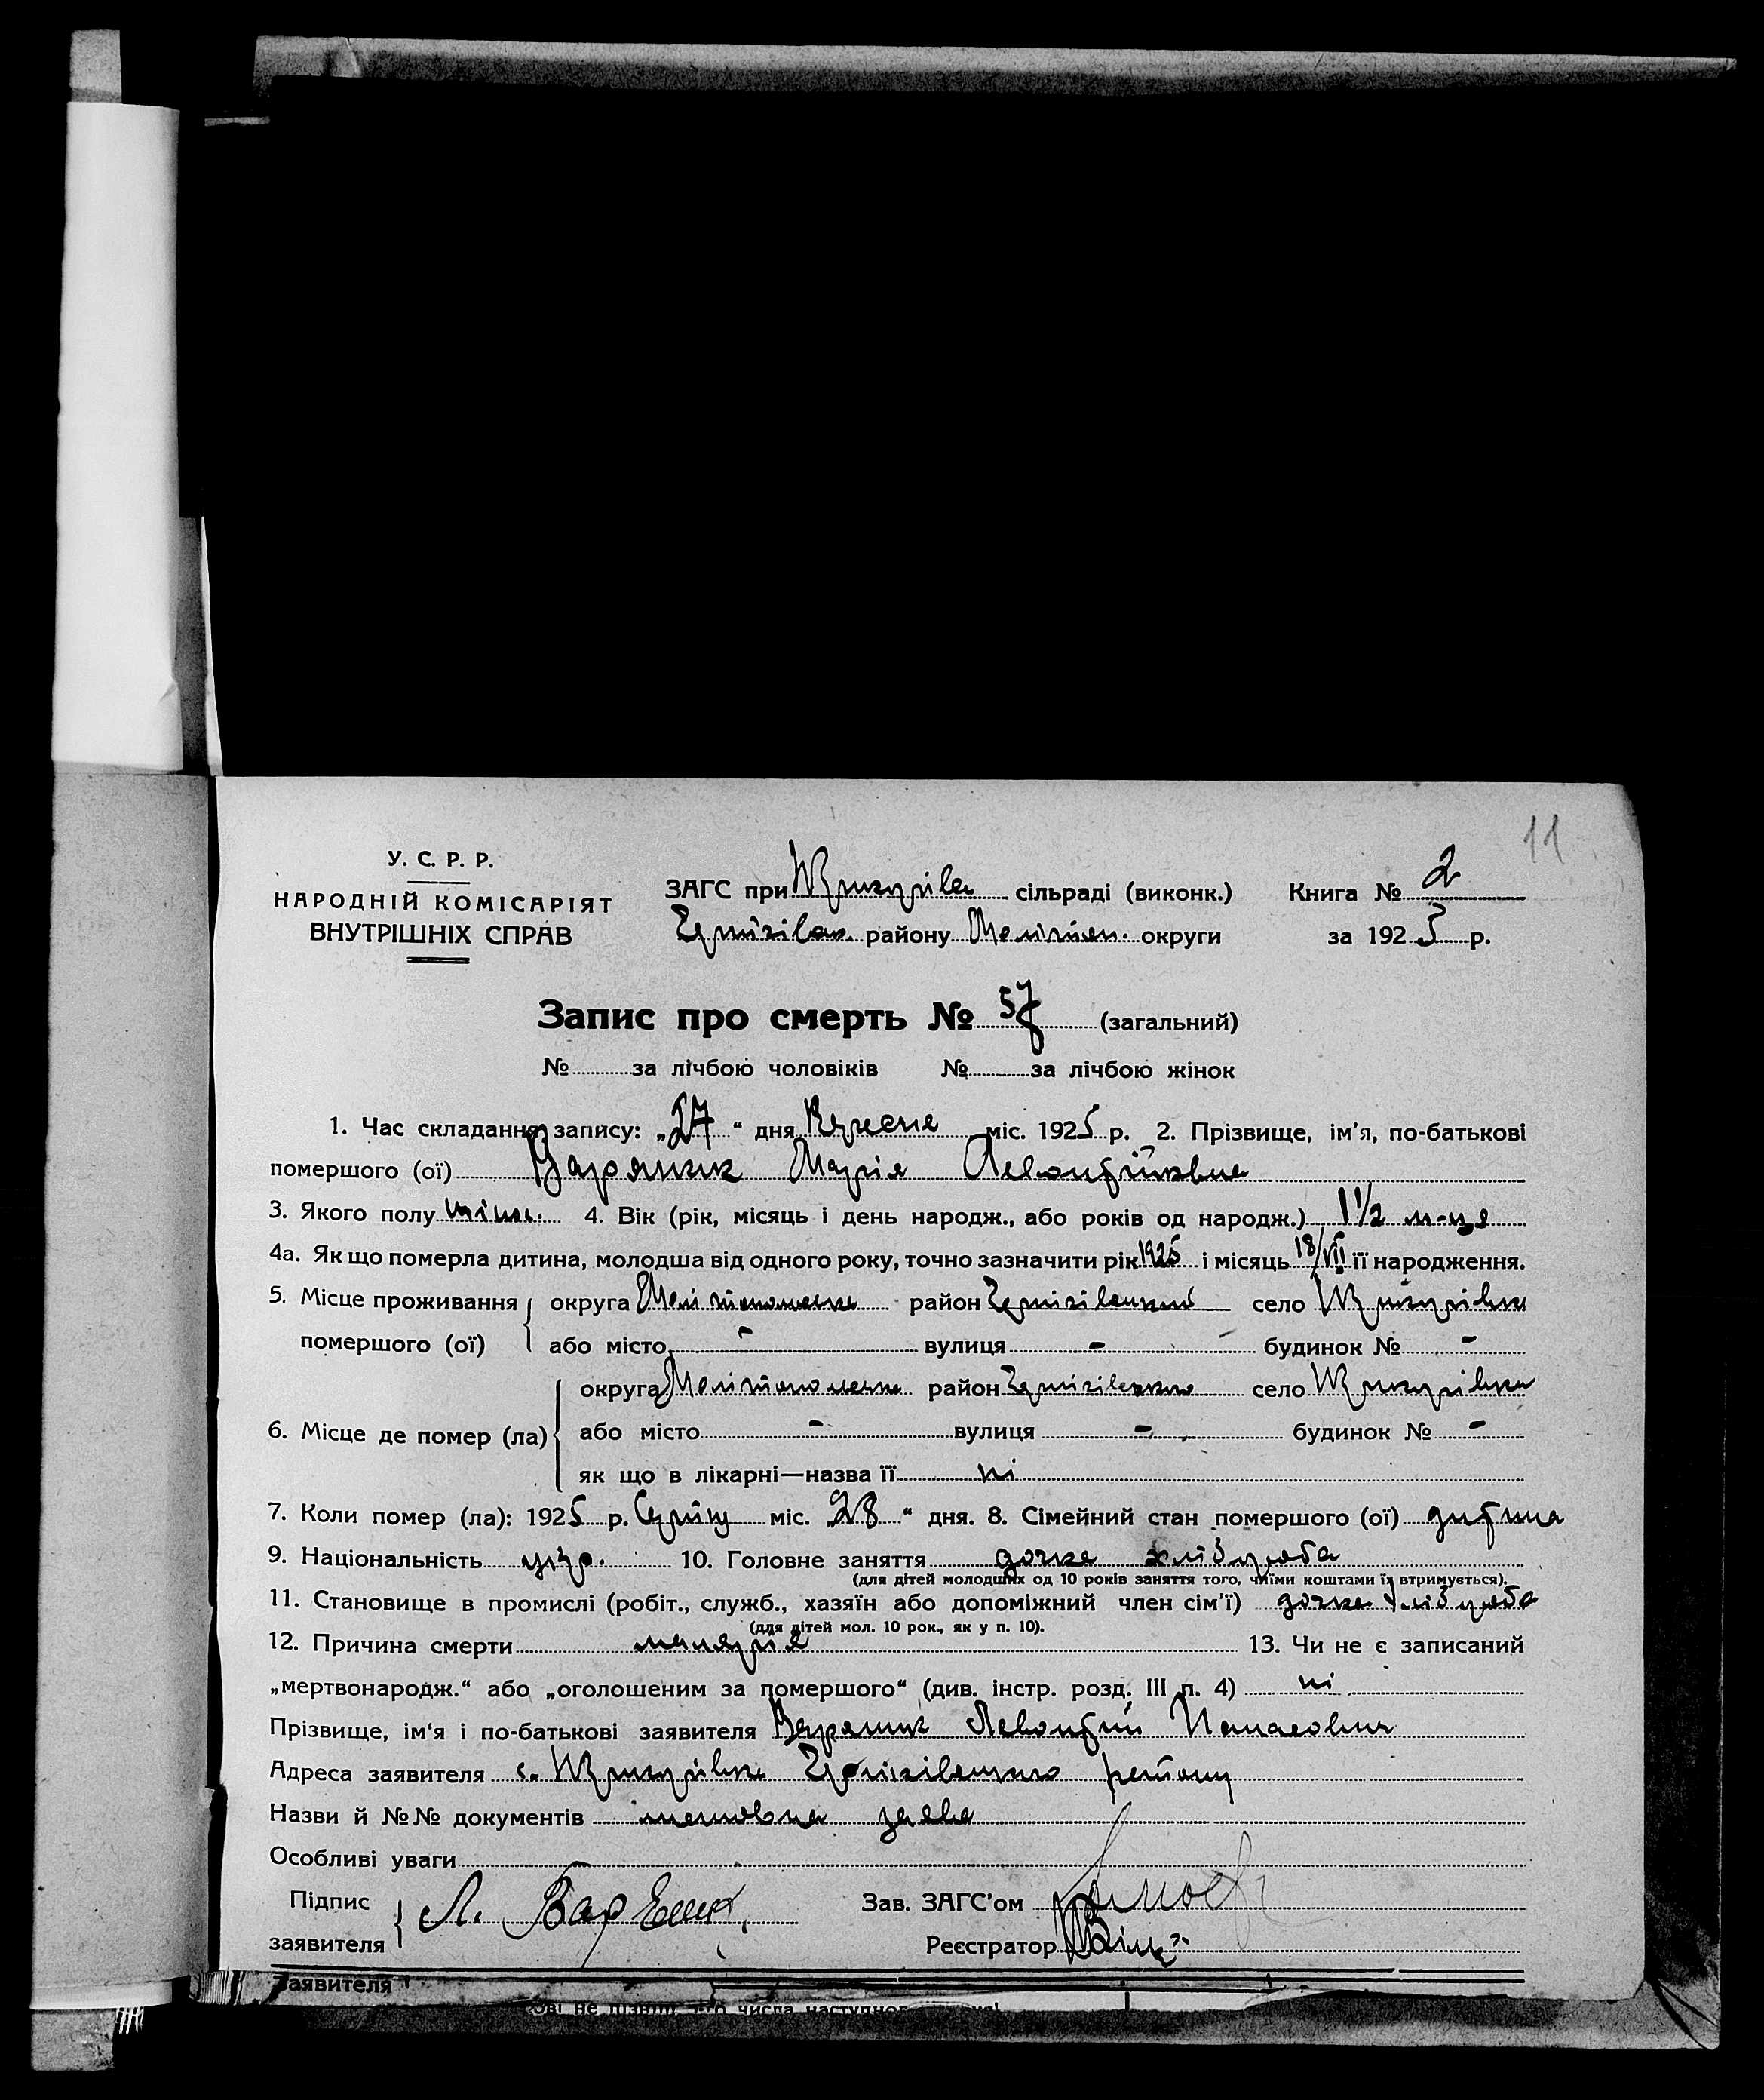 11
У. С. Р. Р.
НАРОДНІЙ КОМІСАРІЯТ
ВНУТРІШНІХ СПРАВ
ЗАГС при сільраді (виконк.) Книга № 2
району Меліт. округи за 1925 р.
Запис про смерть № 57 (загальний)
№ за лічбою чоловіків № за лічбою жінок
1. Час складання запису: „27“ дня Вересня міс. 1925 р. 2. Прізвище, ім'я, по-батькові
помершого (ої) Вареник Марія
3. Якого полу жіно. 4. Вік (рік, місяць і день народж., або років од народж.) 1 1/2 м-ця
4а. Як що померла дитина, молодша від одного року, точно зазначити рік 1925 і місяць 18/VII її народження.
5. Місце проживання округа район село
помершого (ої) або місто - вулиця - будинок № -
округа район село
6. Місце де помер (ла) або місто - вулиця - будинок № -
як що в лікарні—назва її ні
7. Коли помер (ла): 1925 р. Серпня міс. „28“ дня. 8. Сімейний стан помершого (ої) дитина
9. Національність укр. 10. Головне заняття дочка хлібороба
(для дітей молодших од 10 років заняття того, чиїми коштами їх втримується).
11. Становище в промислі (робіт., служб., хазяїн або допоміжний член сім'ї) дочка хлібороба
(для дітей мол. 10 рок., як у п. 10).
12. Причина смерти малярія 13. Чи не є записаний
„мертвонародж.“ або „оголошеним за помершого“ (див. інстр. розд. III п. 4) ні
Прізвище, ім'я і по-батькові заявителя Вареник Левонтій Панасович
Адреса заявителя с. району
Назви й №№ документів заява
Особливі уваги
Підпис Зав. ЗАГС'ом
заявителя Л. Вареник Реєстратор
Заявителя